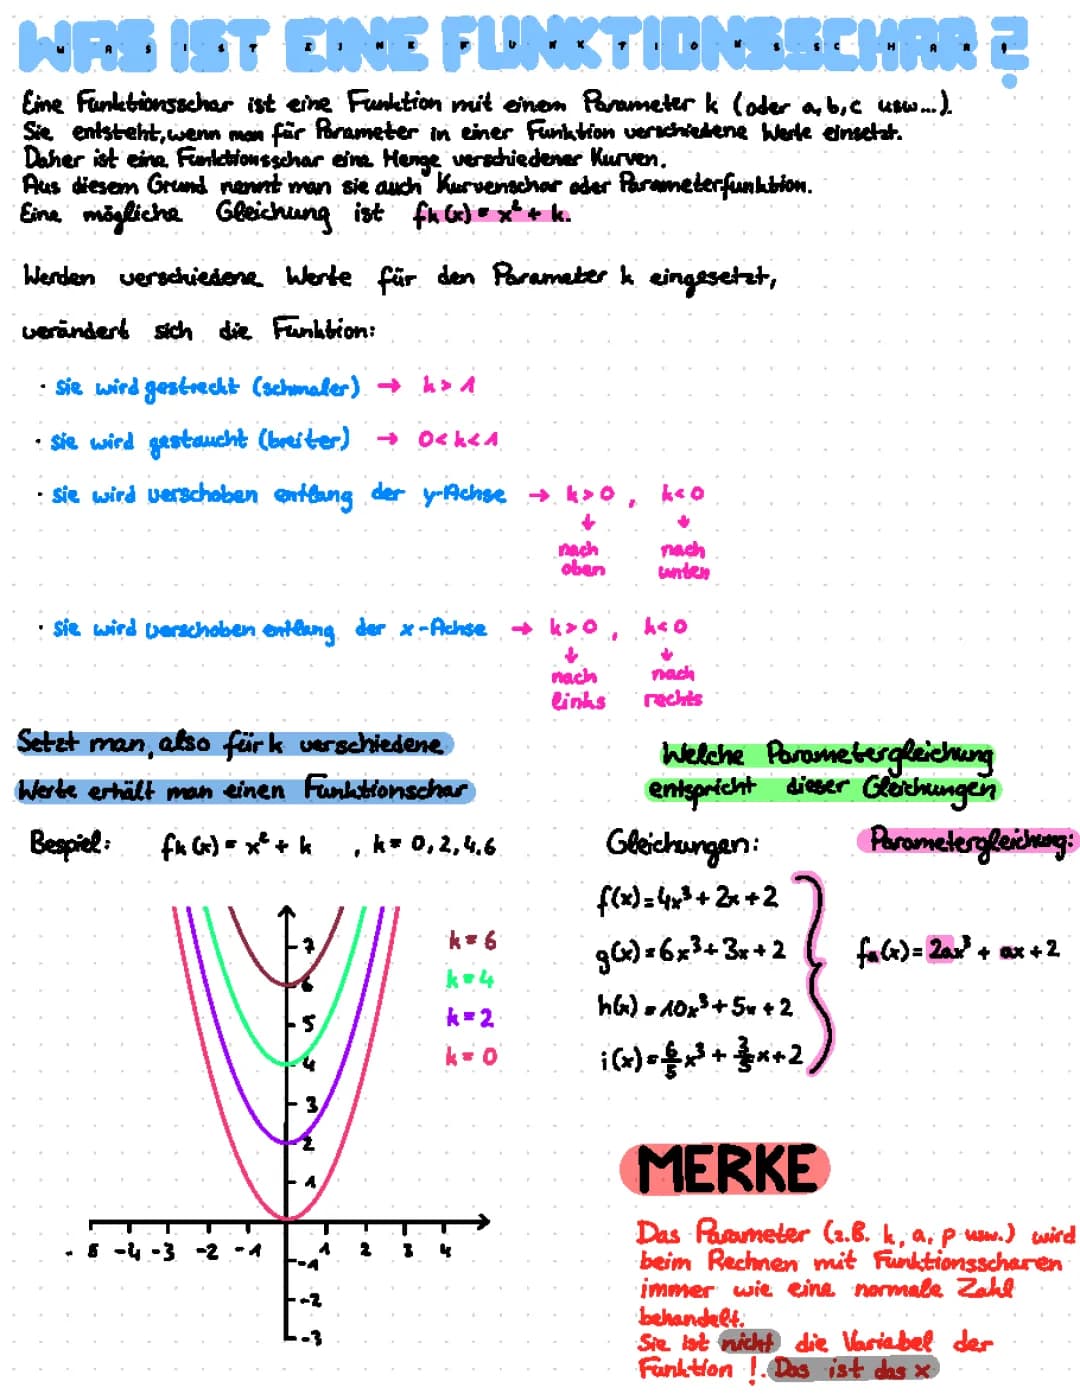 WAS IST EINE FUNKTIONSSCHAR?
Eine Funktionsschar ist eine Funktion mit einem Parameter k (oder a, b, c usw...).
Sie entsteht, wenn man für Parameter in einer Funktion verschiedene Werte einsetzt.
Daher ist eine Funktionsschar eine Menge verschiedener Kurven.
Aus diesem Grund nennt man sie auch Kurvenschar oder Parameterfunktion.
Eine mögliche Gleichung ist fk(x) = x² + k.
Werden verschiedene Werte für den Parameter k eingesetzt,
verändert sich die Funktion:
· sie wird gestreckt (schmaler) → k > 1
· sie wird gestaucht (breiter) → 0 < k < 1
· sie wird verschoben entlang der y-Achse → k > 0 , k < 0
↓ ↓
nach nach
oben unten
· sie wird verschoben entlang der x-Achse → k > 0 , k < 0
↓ ↓
nach nach
links rechts
Setzt man, also für k verschiedene
Werte erhält man einen Funktionschar
Bespiel: fk(x) = x² + k , k = 0, 2, 4, 6
k = 6
k = 4
k = 2
k = 0
7
6
5
4
3
2
1
- 5 -4 -3 -2 -1 1 2 3 4
-1
-2
-3
Welche Parametergleichung
entspricht dieser Gleichungen
Gleichungen: Parametergleichung:
f(x) = 4x³ + 2x + 2
g(x) = 6x³ + 3x + 2
fa(x) = 2ax³ + ax + 2
h(x) = 10x³ + 5x + 2
i(x) = 6/5 x³ + 3/5 x + 2
MERKE
Das Parameter (z.B. k, a, p usw.) wird
beim Rechnen mit Funktionsscharen
immer wie eine normale Zahl
behandelt.
Sie ist nicht die Variabel der
Funktion !. Das ist das x